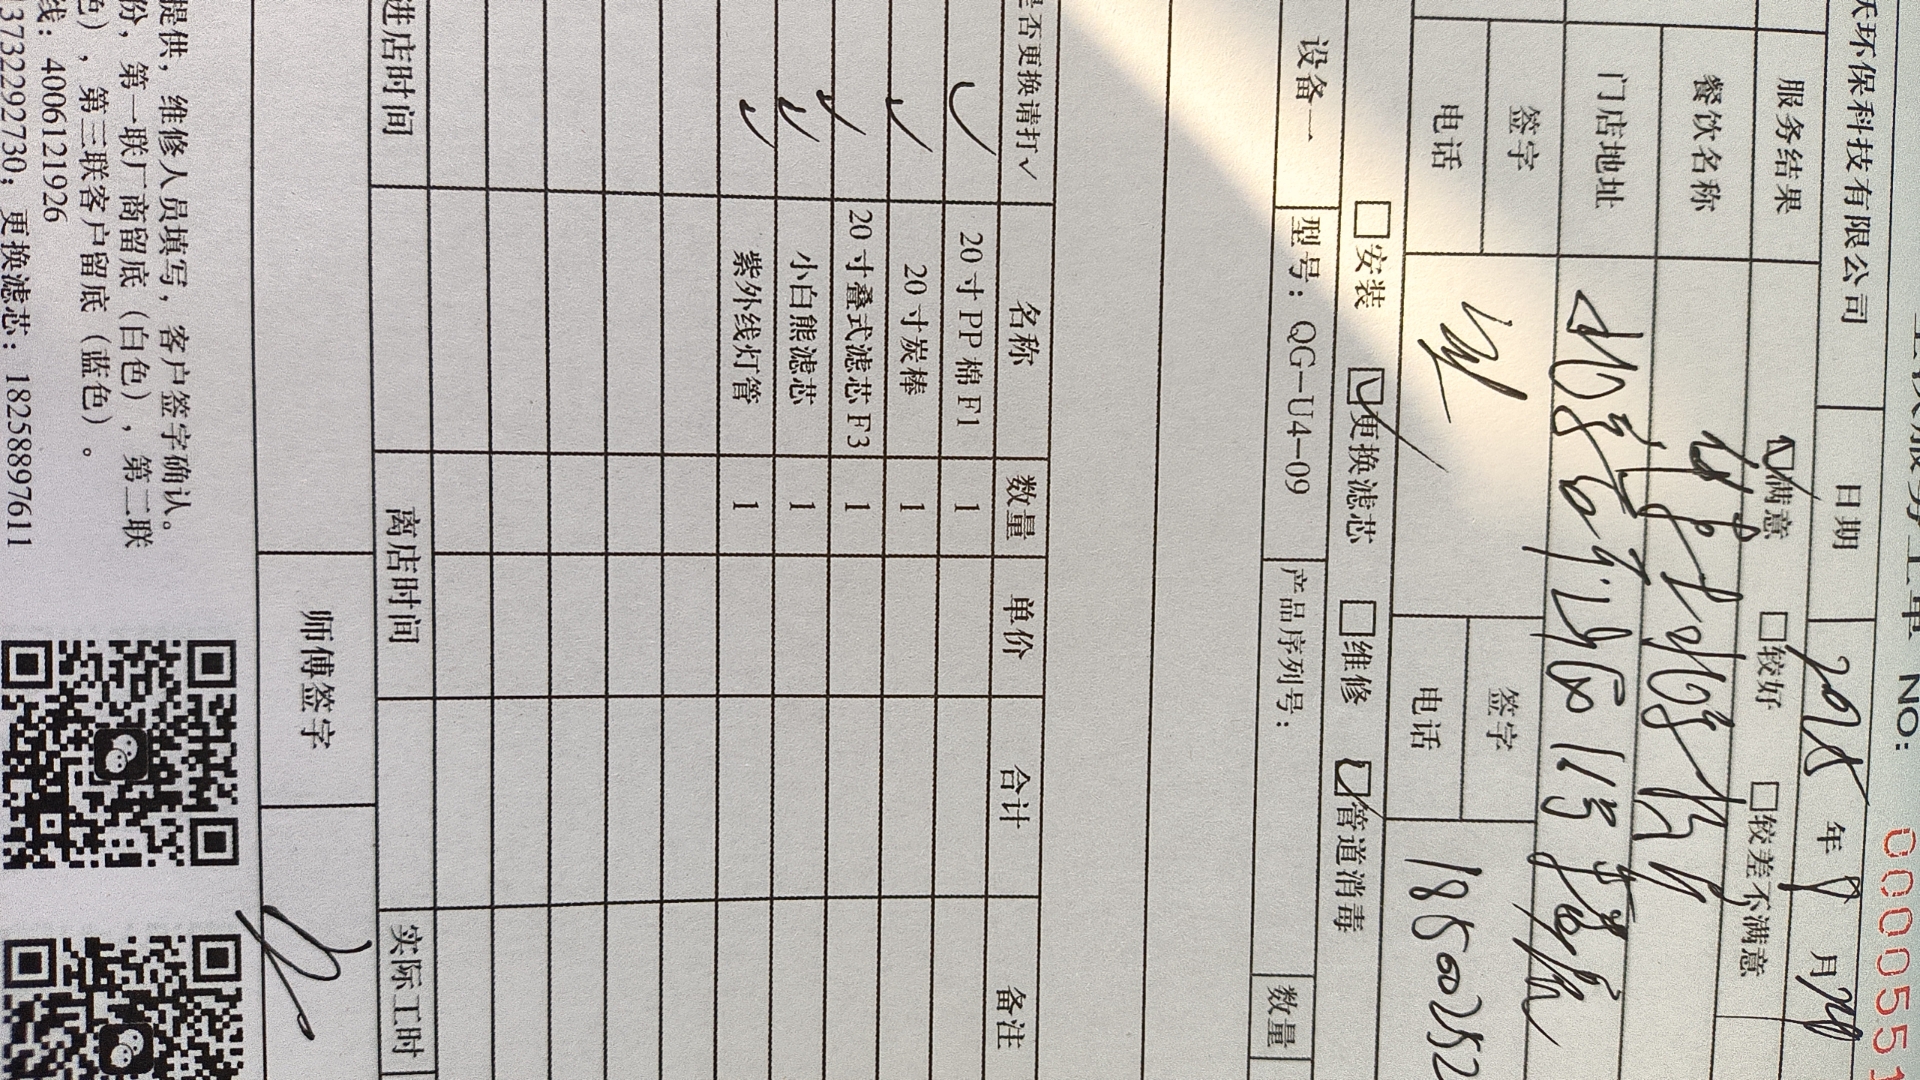 NO: 0000551
沃环保科技有限公司 日期 2025 年 8 月
服务结果 满意 □较好 □较差不满意
餐饮名称
门店地址
签字 签字
电话 电话 18500252
□安装 ☑更换滤芯 □维修 ☑管道消毒
设备一 型号：QG-U4-09 产品序列号： 数量
是否更换请打✓ 名称 数量 单价 合计 备注
✓ 20寸PP棉F1 1
✓ 20寸炭棒 1
✓ 20寸叠式滤芯F3 1
✓ 小白熊滤芯 1
✓ 紫外线灯管 1
进店时间 离店时间 实际工时
师傅签字
提供，维修人员填写，客户签字确认。
份，第一联厂商留底（白色），第二联
色），第三联客户留底（蓝色）。
线：4006121926
13732292730；更换滤芯：18258897611